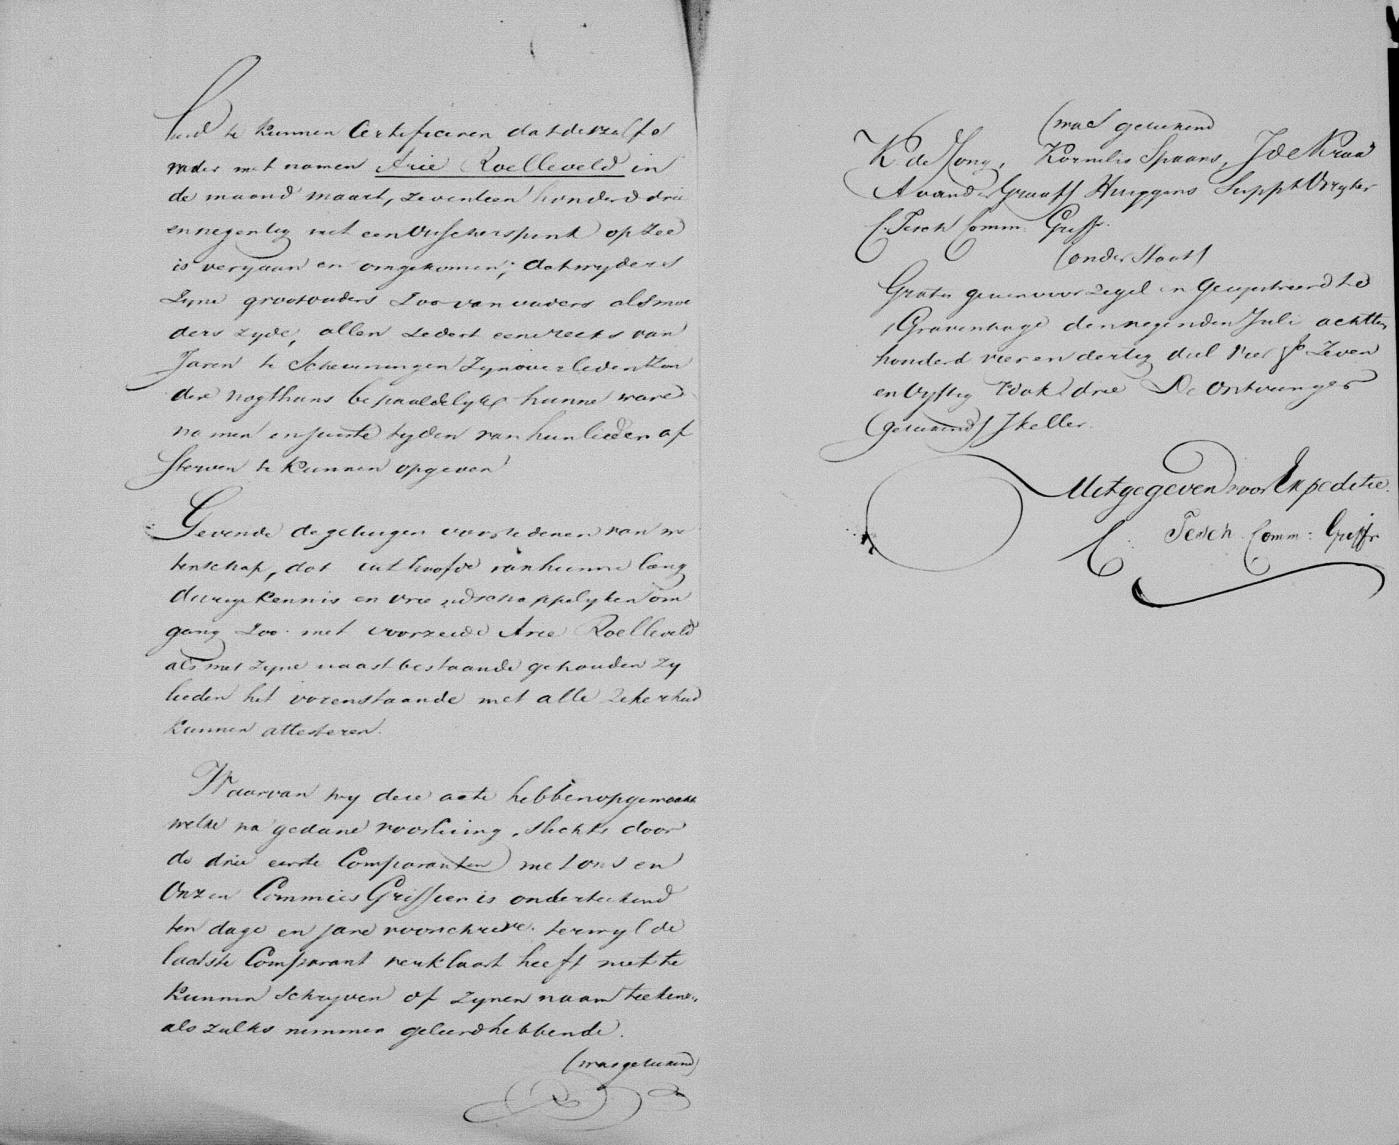 heid te kunnen Certificeren dat deszelfs
vader met namen Arie Roelleveld in
de maand maart, zeventien honderd drie
en negentig met een Visscherspink op Zee
is vergaan en omgekomen; dat wyders
zyne grootouders zoo van vaders als moe
ders zyde, allen zedert eene reeks van
Jaren te Scheveningen zyn overleden zon
der nogthans bepaaldelyk hunne ware
namen en juiste tyden van hunlieder af
sterven te kunnen opgeven
Gevende de getuigen voor redenen van we
tenschap, dat uit hoofde van hunne lang
durige kennis en vriendschappelyken om
gang zoo met voorzeide Arie Roelleveld
als met zyne naastbestaande gehouden zy
lieden het vorenstaande met alle zekerheid
kunnen attesteren.
Waarvan wy deze acte hebben opgemaakt
welke na gedane voorlezing, slechts door
de drie eerste Comparanten met ons en
Onzen Commies Griffier is onderteekend
ten dage en jare voorschreve. terwyl de
laatste Comparant verklaart heeft niet te
kunnen schryven of zynen naam teekenen
als zulks nimmer geleerd hebbende.
(was geteekend)
(was geteekend)
K. de Jong, Kornelis Spaans, J de Kraa
A van der Graaff Huygens Suppt Vry
C. Tesch Comm. Griff.
(onder stont)
Gratis geven voor zegel en Geregistreerd te
s'Gravenhage den negenden Juli achttien
honderd vier en dertig deel vier fo. zeven
en vyftig Vak drie De Ontvanger
(geteekend) J Keller.
Uitgegeven voor Expeditie
C. Tesch Comm: Griffr